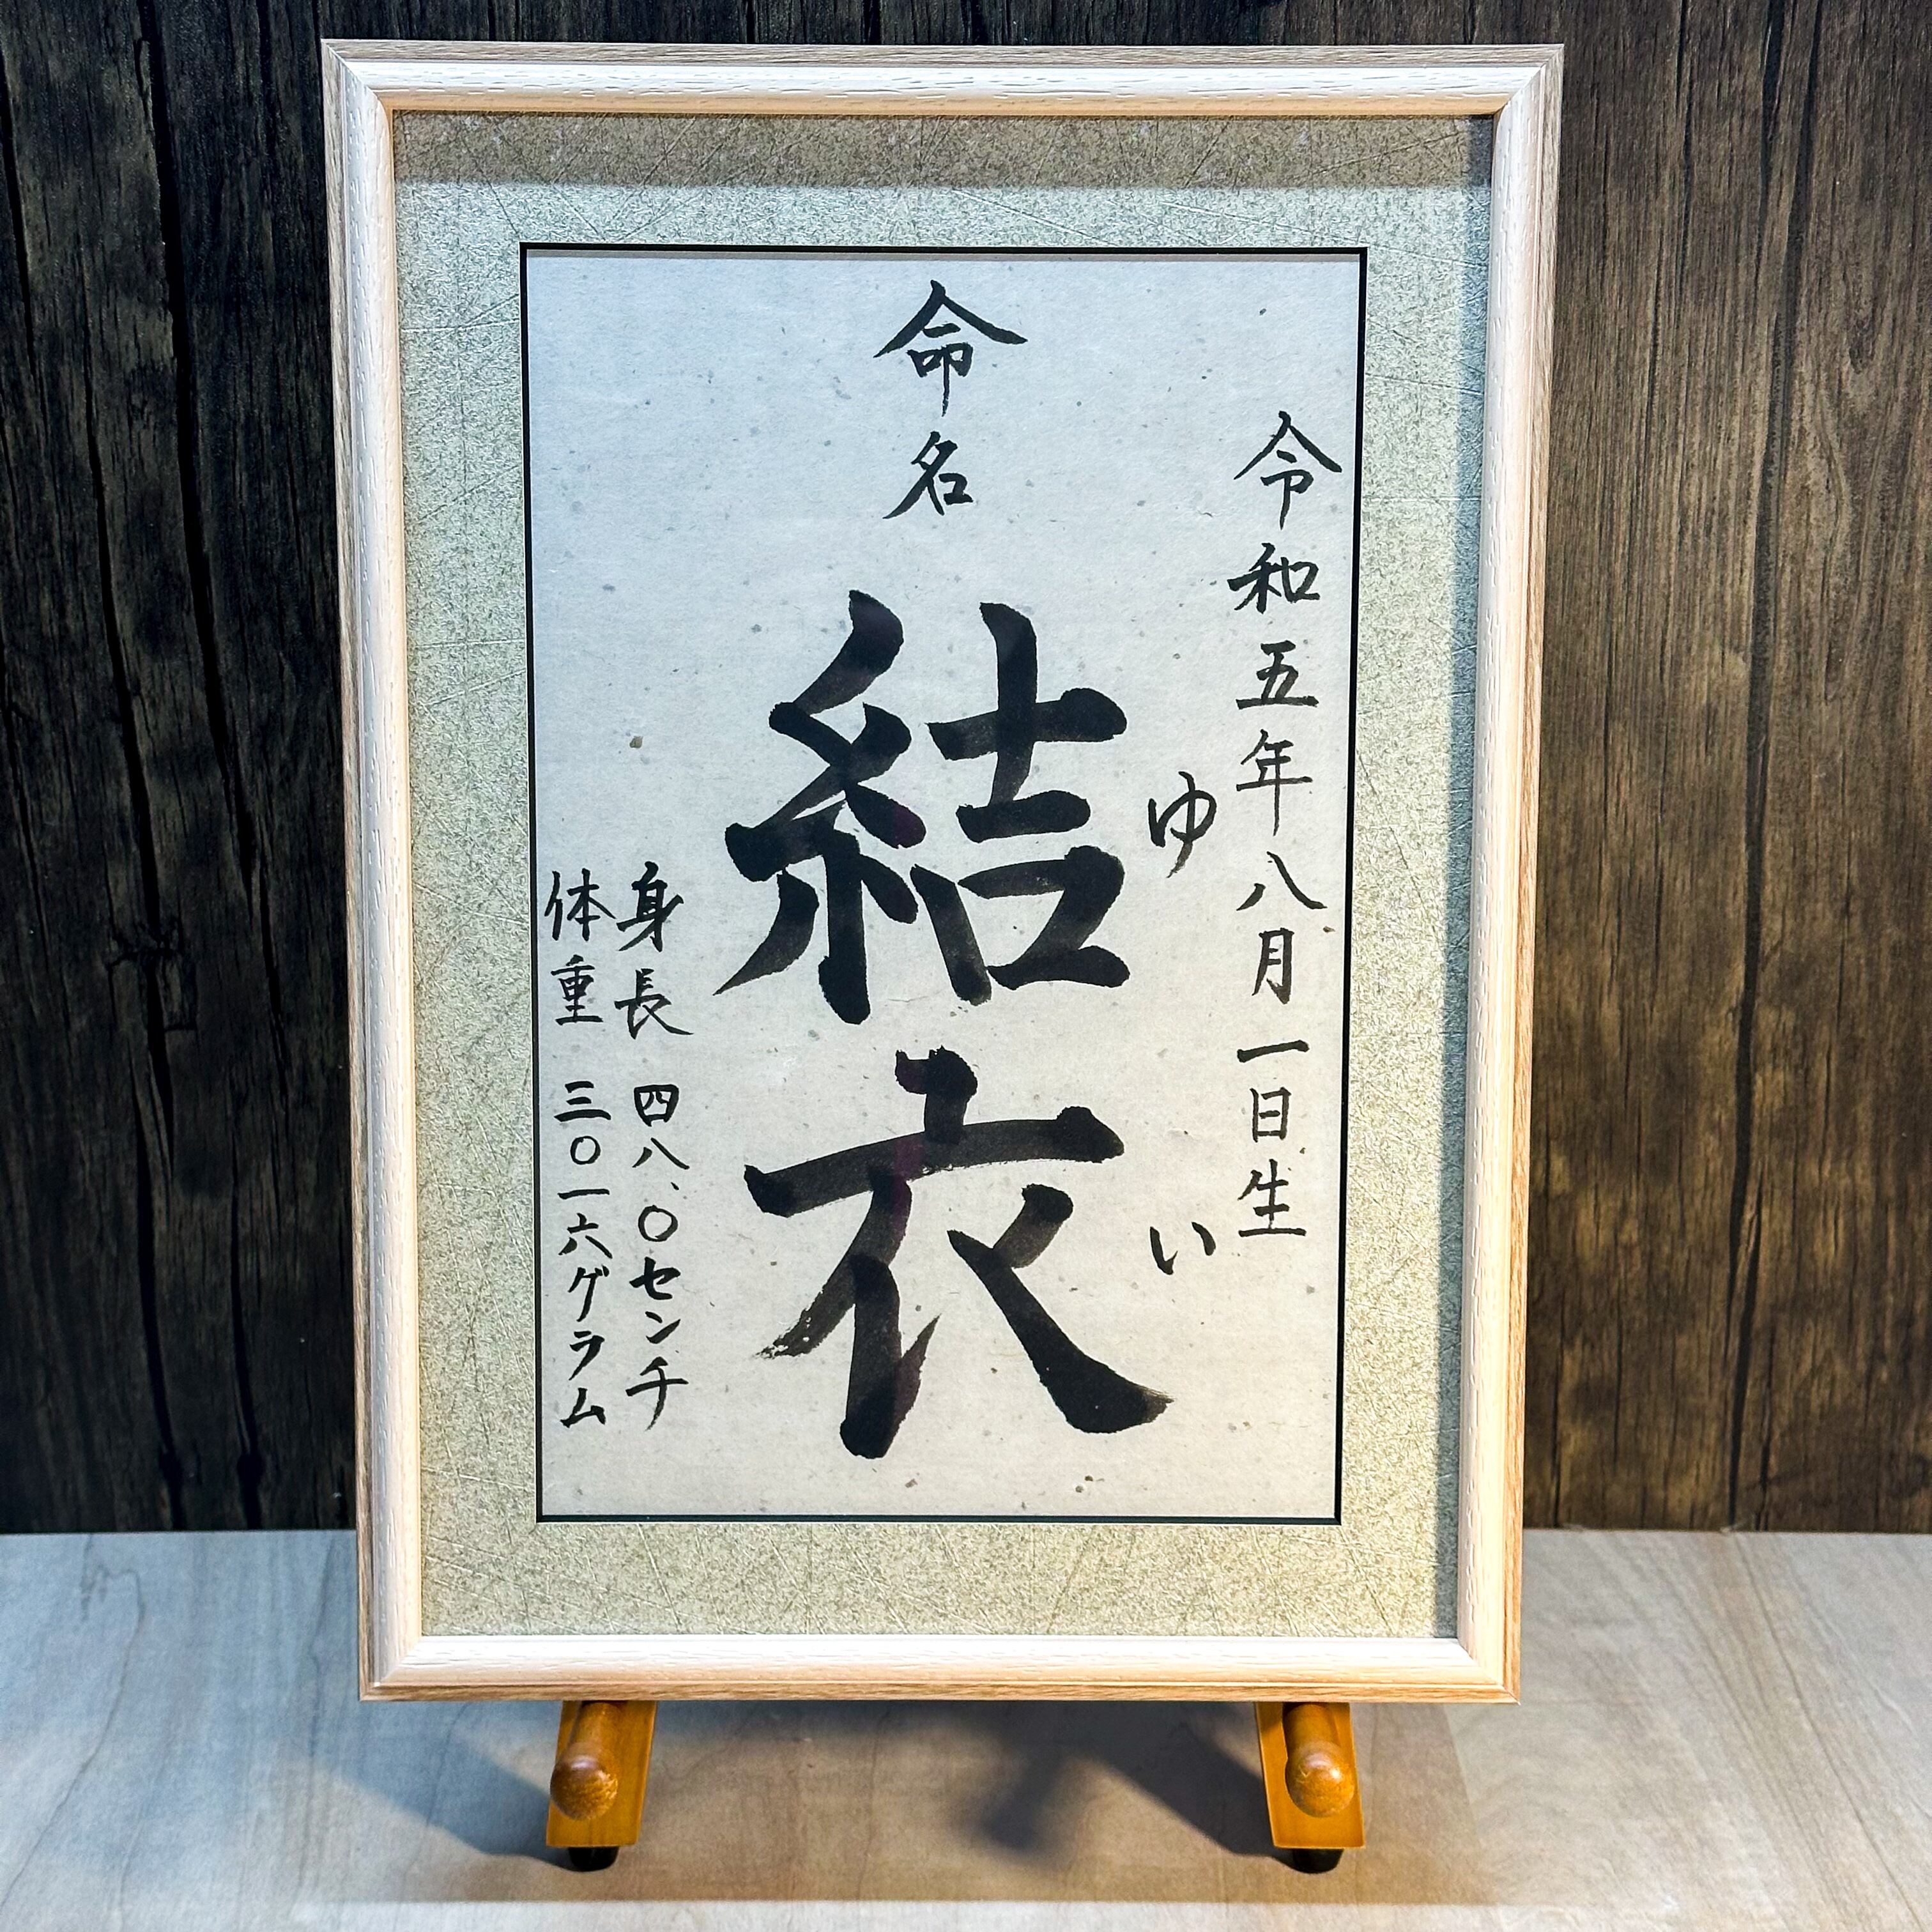 令和五年八月一日生
命名
結衣
ゆい
身長 四八、〇センチ
体重 三〇一六グラム